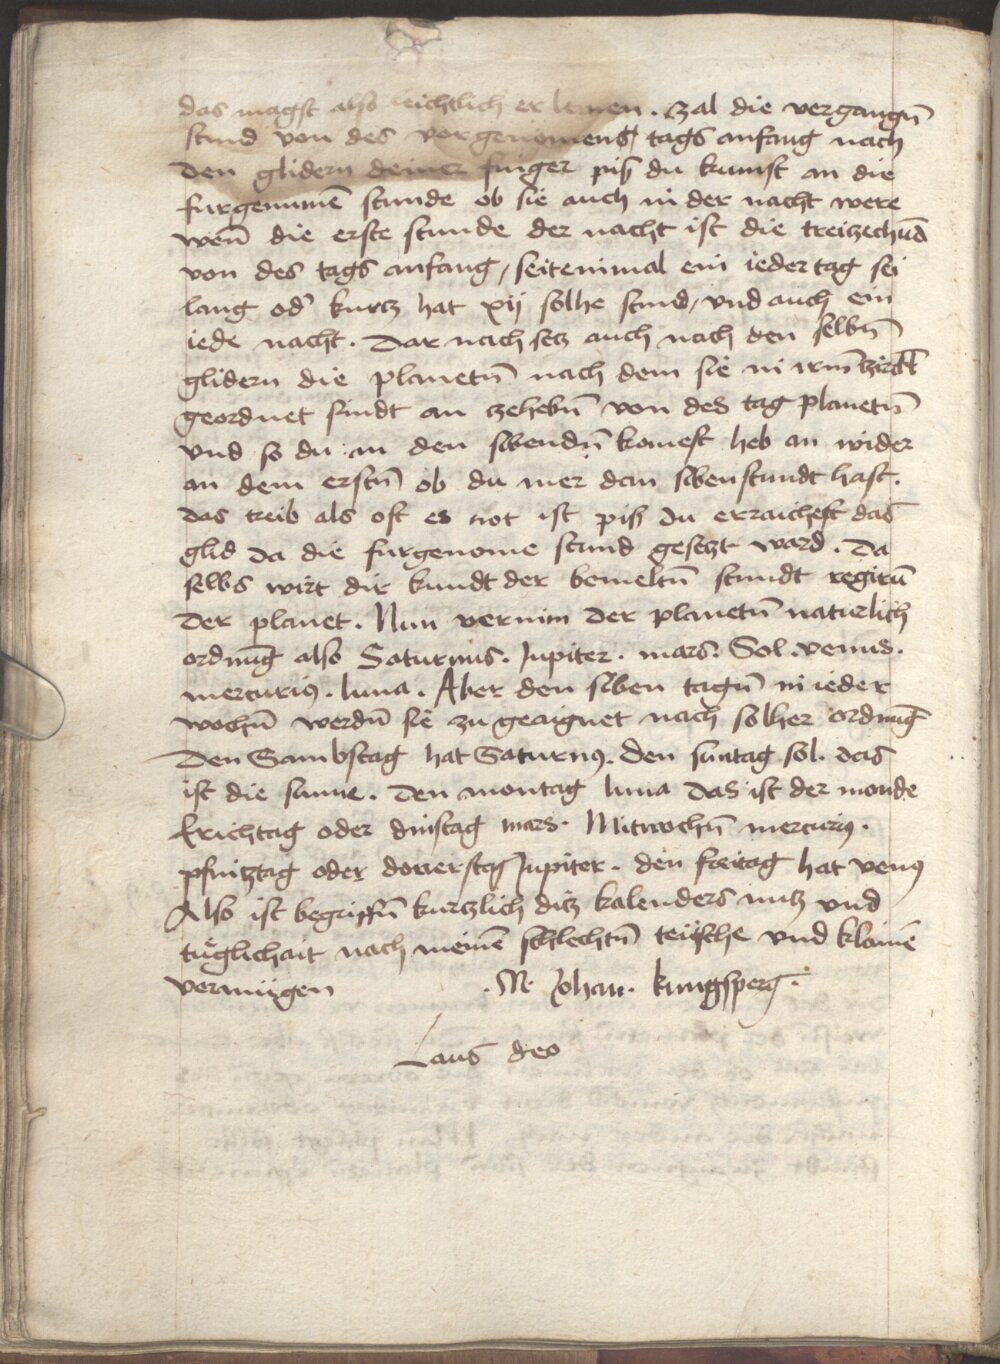 das magst also leichtlich er lernen. Zal die vergangn̄
stund von des vorgenomens tags anfang nach
den glidern deiner finger piß du kumst an die
furgenumē stunde ob sie auch in der nacht were
wen̄ die erste stunde der nacht ist die treitzechūd
von des tags anfang / seitenimal ein ieder tag sei
lang od̓ kurtz hat xij solhe stund / vnd auch ein
iede nacht. Dar nach setz auch nach den selbn̄
glidern die planetn̄ nach dem sie in irm̄ tzirckl
geordnet sindt an zehebn̄ von des tag planetn̄
vnd so du an den sibendn̄ komest heb an wider
an dem erstn̄ ob du mer dan siben stundt hast.
das treib als oft es not ist piß du erraichest das
glid da die furgenome stund gesetzt ward. Da
selbs wirt dir kundt der bemeltn̄ stundt regirū
der planet. Nun vernim der planetn̄ naturlich
ordnūg also Saturnus. Jupiter. mars. Sol. venus.
mercuriꝰ. luna. Aber den siben tagn̄ in ieder
wochn̄ werdn̄ sie zu geaignet nach solher ordnūg
Den Sambstag hat Saturnꝰ. den suntag sol. das
ist die sunne. den montag luna das ist der monde
Erichtag oder dinstag mars. Mitwochn̄ mercuriꝰ.
pfintztag oder donerstag Jupiter. den freitag hat venꝰ
Also ist begriffn̄ kurtzlich ditz kalenders nutz vnd
tuͤglichait nach meinē schlechtn̄ teutsche vnd klainē
vermügen .M. Johan. kungsperg.
Laus deo